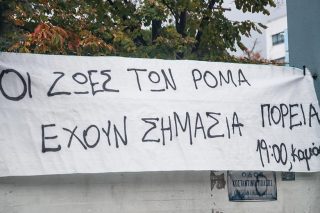 ΟΙ ΖΩΕΣ ΤΩΝ ΡΟΜΑ
ΕΧΟΥΝ ΣΗΜΑΣΙΑ
ΠΟΡΕΙΑ
19:00,